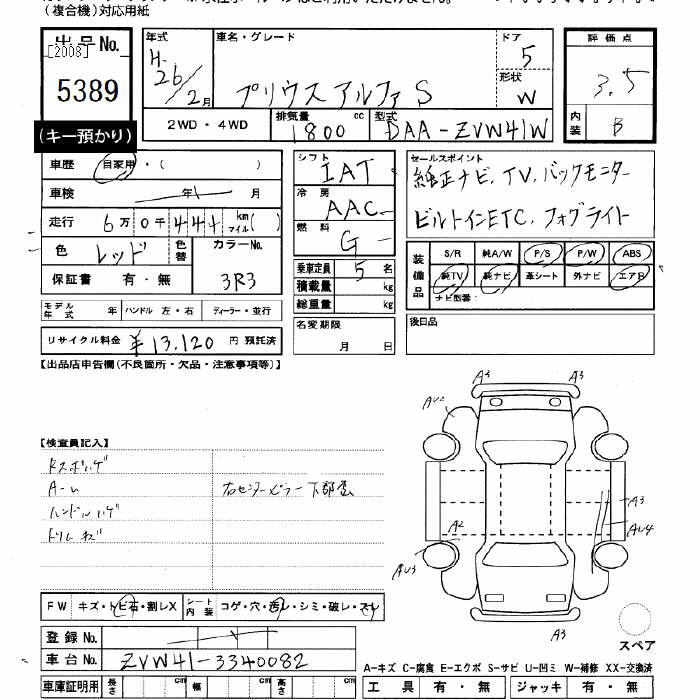 (複合機)対応用紙
出品No. [2008] 5389
(キー預かり)
年式 H-26/2月
車名・グレード プリウスアルファ S
ドア 5
形状 W
評価点 3.5
内装 B
2WD・4WD
排気量 1800 cc
型式 DAA-ZVW41W
車歴 自家用・( )
車検 年 月
走行 6万0千444 km マイル( )
色 レッド 色替 カラーNo. 3R3
保証書 有・無
モデル年式 年 ハンドル 左・右 ディーラー・並行
リサイクル料金 ¥13,120 円 預託済
シフト IAT
冷房 AAC
燃料 G
乗車定員 5 名
積載量 kg
総重量 kg
名変期限 月 日
セールスポイント
純正ナビ、TV、バックモニター
ビルトインETC、フォグライト
装備品 S/R 純A/W P/S P/W ABS
純TV 純ナビ 革シート 外ナビ エアB
ナビ型番:
後日品
【出品店申告欄(不良箇所・欠品・注意事項等)】
【検査員記入】
ハンドルハゲ
右センターピラー下部
A3 A3
AU2
A3
AU4
A2
AU3
A3
FW キズ・トビ石・割レX シート内装 コゲ・穴・汚レ・シミ・破レ・スレ
登録No.
車台No. ZVW41-3340082
車庫証明用 長さ cm 幅 cm 高さ cm
スペア
A-キズ C-腐食 E-エクボ S-サビ U-凹ミ W-補修 XX-交換済
工具 有・無 ジャッキ 有・無